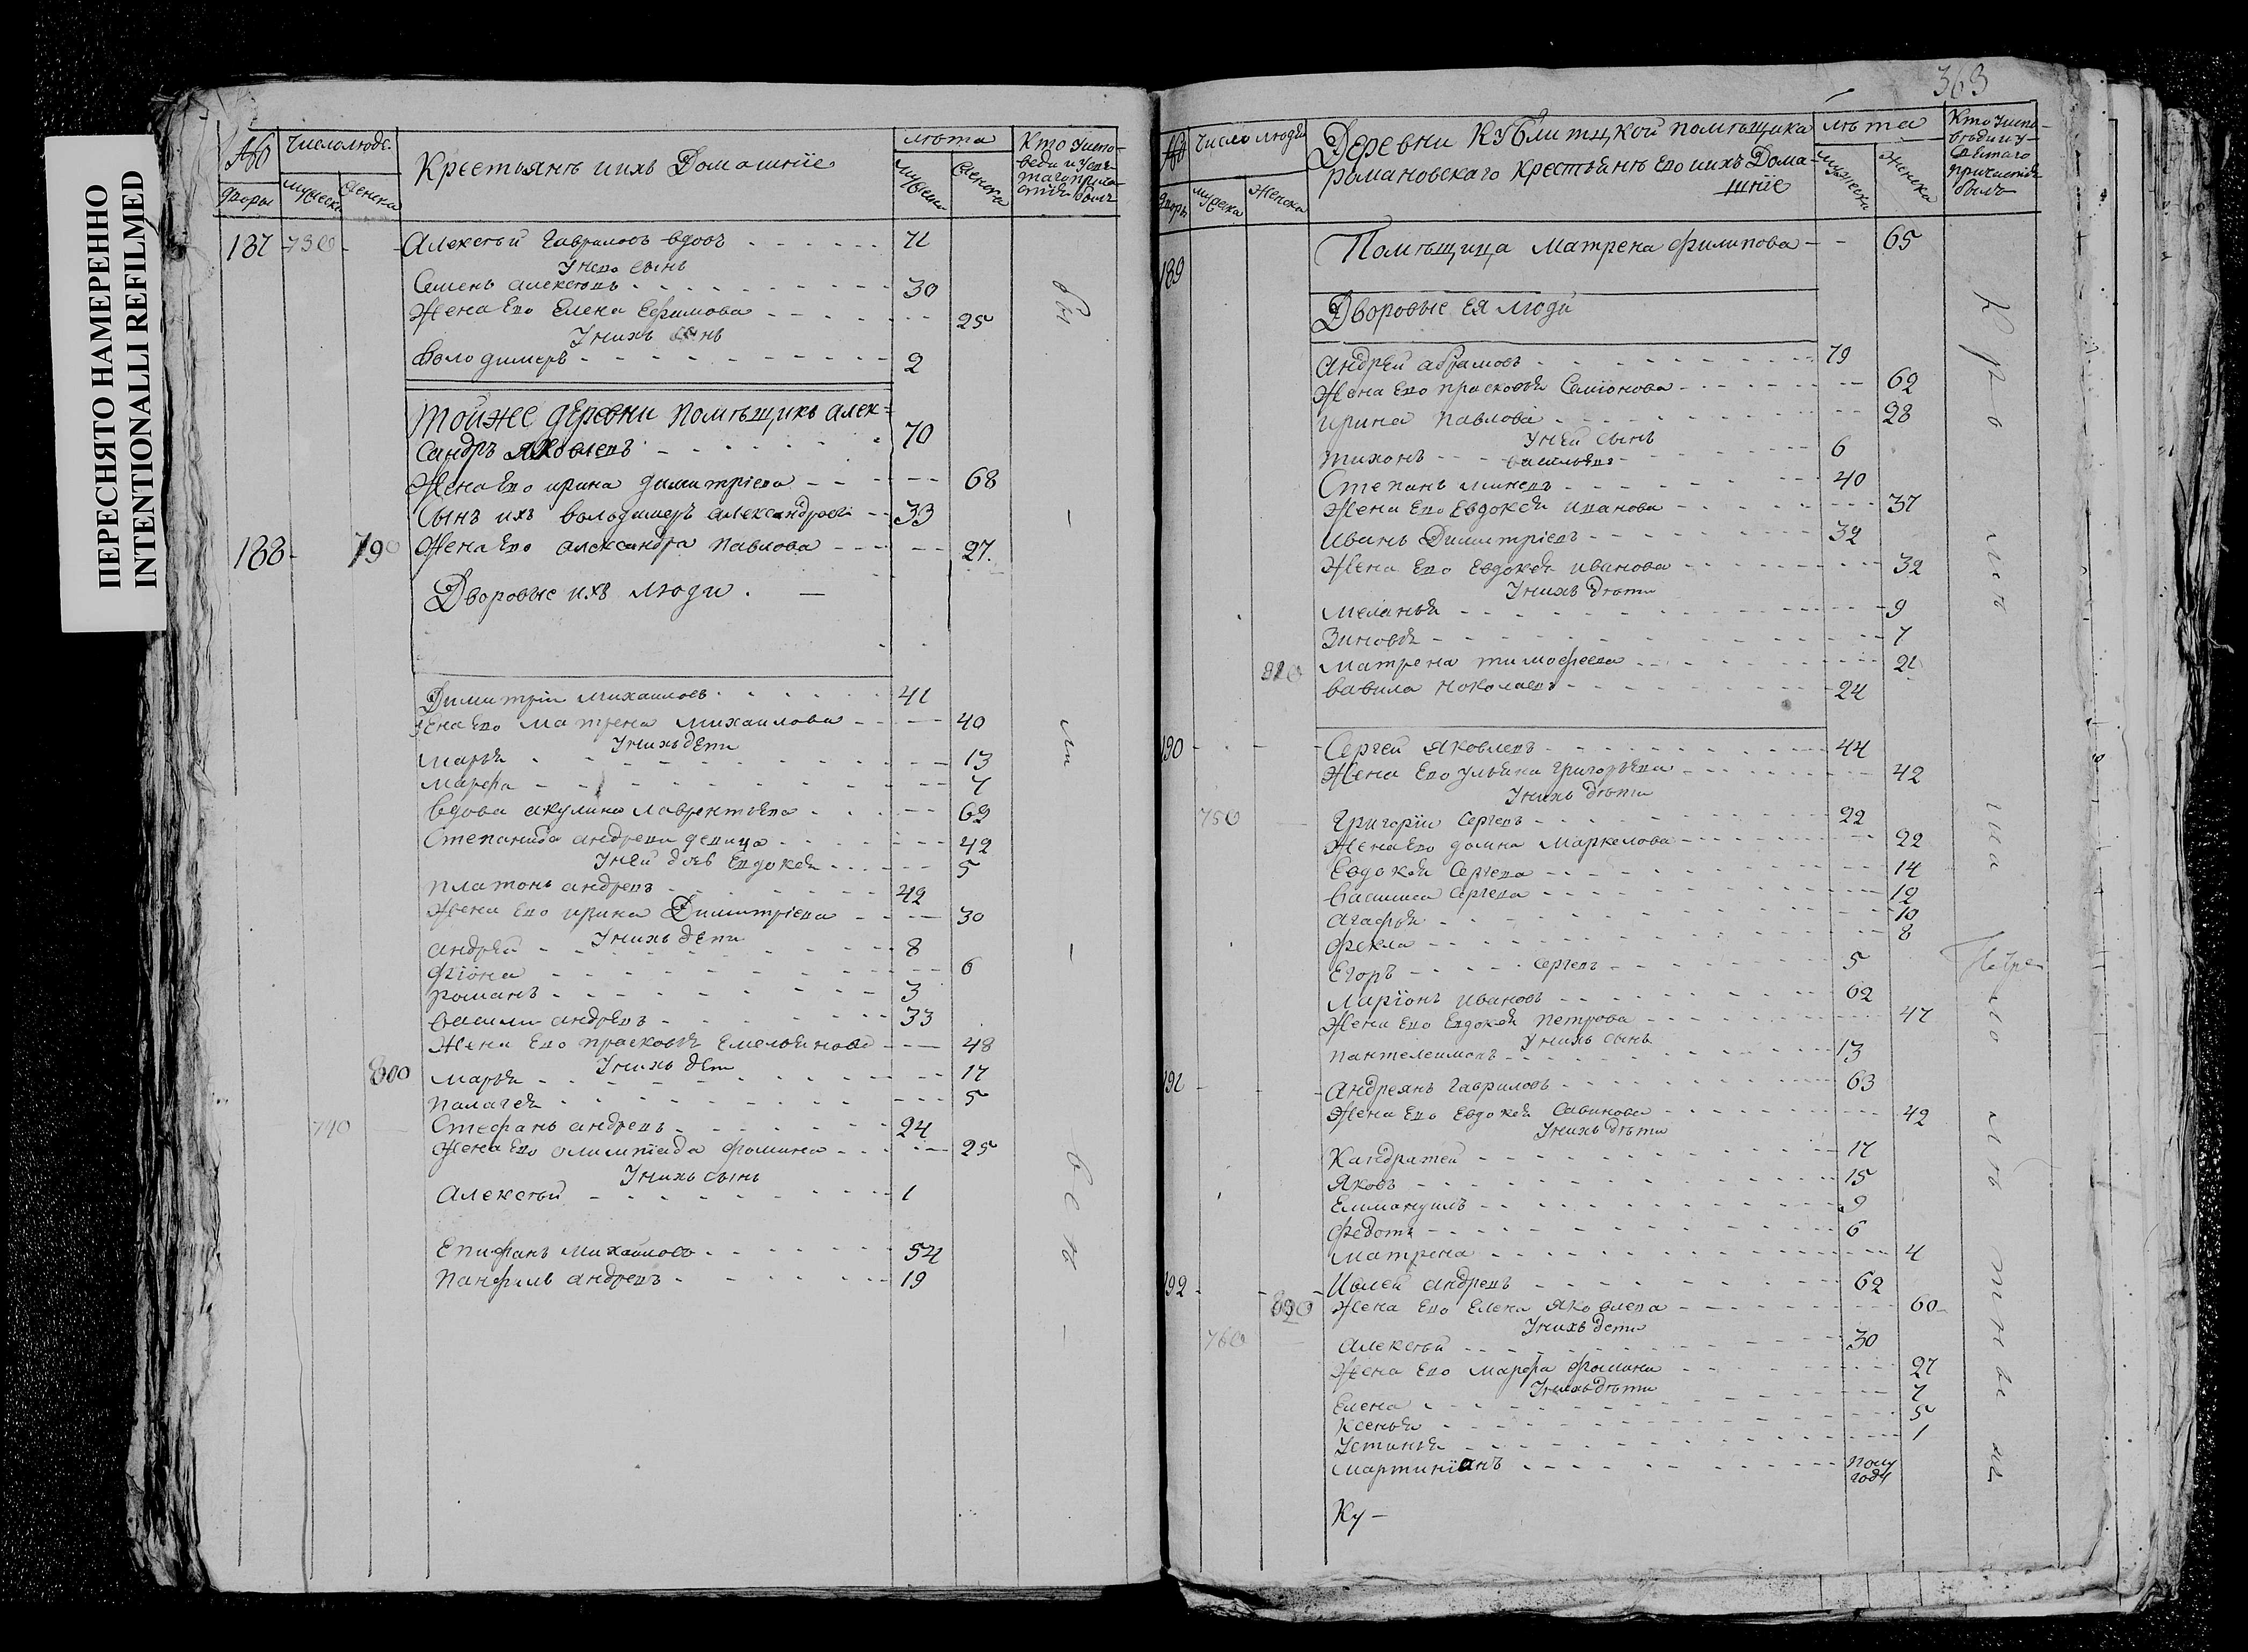 ПЕРЕСНЯТО НАМЕРЕННО
INTENTIONALLI REFILMED
№ Число люде
дворы мужеска женска
Крестьянъ и ихъ Домашніе
лѣта
мужеска женска
Кто у испо-
веди и у свя-
таго прича-
стія былъ
187 730 Алексѣй Гавриловъ вдовъ 71
У него сынъ
Семенъ алексѣевъ 30
Жена Его Елена Ефимова 25
У нихъ сынъ
Володимеръ 2
Тойже деревни помѣщикъ алек-
сандръ яковлевъ 70
Жена Его ирина димитріева 68
Сынъ ихъ володимеръ александровъ 33
188 790 Жена Его александра павлова 27.
Дворовые ихъ люди.
Димитріи михаиловъ 41
жена Его матрена михаилова 40
У нихъ дети
марья 13
марфа 7
вдова акулина лаврентьева 69
Степанида андреева девица 42
У ней дочь Евдокея 5
платонъ андревъ 42
Жена Его ирина Димитріева 30
У нихъ дети
андрей 8
фіона 6
романъ 3
василии андревъ 33
Жена Его прасковья Емельянова 48
У нихъ дети
800 марья 17
палагея 5
740 Стефанъ андревъ 24
Жена Его олимпіада фомина 25
У нихъ сынъ
Алексѣй 1
Епифанъ михаиловъ 54
Панфилъ андревъ 19
бы
ли
всѣ
363
№ Число людей
дворы мужеска женска
Деревни Кублитцкой помѣщика
романовскаго Крестьянъ Его и ихъ Дома-
шніе
лѣта
мужеска женска
Кто у испо-
вѣди и у
святаго
причастія
былъ
189 Помѣщица матрена филипова 65
Дворовые Ея люди
андрей абрамовъ 79
Жена Его прасковья Саміонова 62
ирина павлова 28
У ней сынъ
тихонъ васильевъ 6
Степанъ миневъ 40
Жена Его Евдокея иванова 37
иванъ Димитріевъ 32
Жена Его Евдокея иванова 32
У нихъ дѣти
меланья 9
Зиновья 7
810 матрена тимофеева 21
вавила николаевъ 24
190 Сергей яковлевъ 44
Жена Его ульяна григорьева 42
У нихъ дѣти
750 григоріи сергевъ 22
Жена Его домна маркелова 22
Евдокея Сергева 14
василиса Сергева 12
агафья 10
фекла 8
Егоръ сергевъ 5
Маріонъ ивановъ 62
Жена Его Евдокея петрова 47
У нихъ сынъ
пантелеимонъ 13
191 андреянъ гавриловъ 63
Жена Его Евдокея савинова 42
У нихъ дѣти
Кандратей 17
яковъ 15
9
федотъ 6
матрена 4
192 андревъ 62
820 Жена Его Елена яковлева 60
У нихъ дети
760 алексѣй 30
Жена Его марфа фомина 27
У нихъ дѣти
Елена 7
Ксенья 5
Устинья 1
мартиніанъ полу
году
Ку-